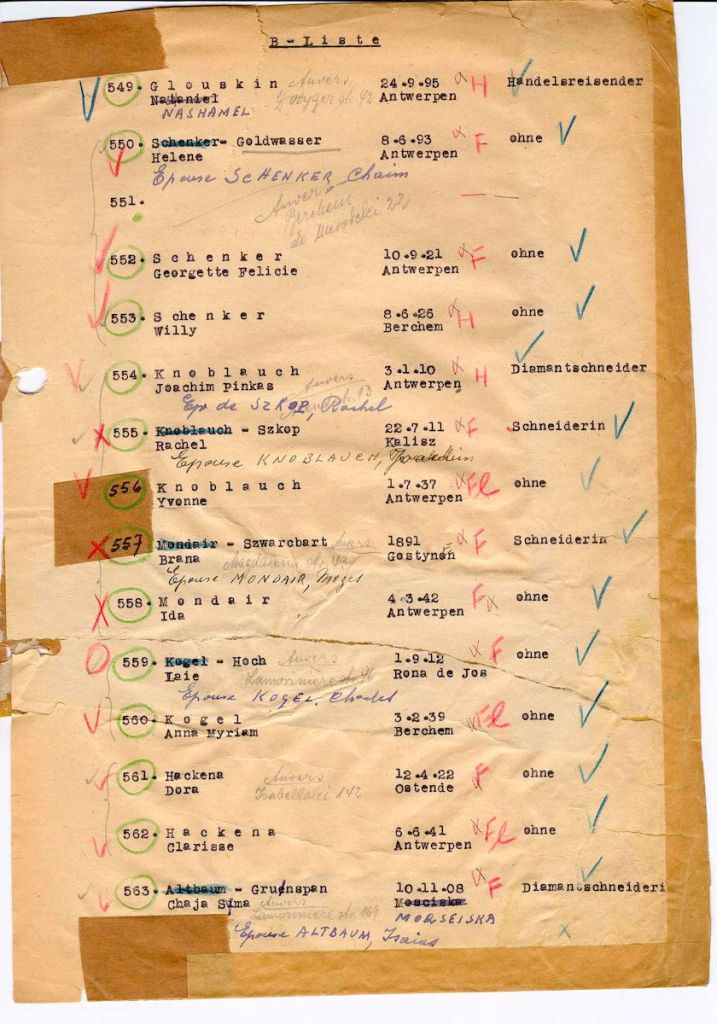 B-Liste
549. Glouskin Anvers 24.9.95 H Handelsreisender
Nataniel 42 Antwerpen
NASHAMEL
550. Schenker- Goldwasser 8.6.93 F ohne
Helene Antwerpen
Epouse SCHENKER Chaim
551. Anvers
Berchem
de Merodelei 22
552. Schenker 10.9.21 F ohne
Georgette Felicie Antwerpen
553. Schenker 8.6.26 H ohne
Willy Berchem
554. Knoblauch 3.1.10 H Diamantschneider
Joachim Pinkas Anvers Antwerpen
Ep. de SZKOP, Rachel
555. Knoblauch - Szkop 22.7.11 F Schneiderin
Rachel Kalisz
Epouse KNOBLAUCH,
556 Knoblauch 1.7.37 Fl ohne
Yvonne Antwerpen
557 Mondair - Szwarcbart Anvers 1891 F Schneiderin
Brana Gostynen
Epouse MONDAIR, Mozes
558. Mondair 4.3.42 F ohne
Ida Antwerpen
559. Kogel - Hoch Anvers 1.9.12 F ohne
Laie Rona de Jos
Epouse KOGEL, Charles
560. Kogel 3.2.39 Fl ohne
Anna Myriam Berchem
561. Hackena Anvers 12.4.22 F ohne
Dora Isabellalei 142 Ostende
562. Hackena 6.6.41 Fl ohne
Clarisse Antwerpen
563. Altbaum - Gruenspan 10.11.08 F Diamantschneideri
Chaja Syma Anvers Mosciska
MORSEISKA
Epouse ALTBAUM, Isaias